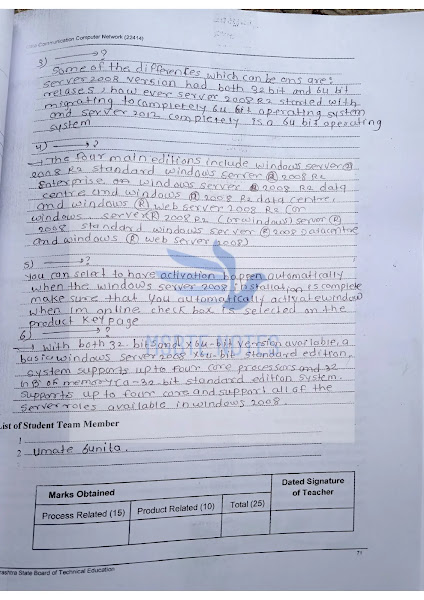 Communication Computer Network (22414)
3) → ?
Some of the differences which can be ans are:
server 2008 version had both 32 bit and 64 bit
relases, how ever server 2008 R2 started with
migrating to completely 64 bit operating system
and server 2012 completely is a 64 bit operating
system
4) → ?
→ The four main editions include windows server ®
2008 R2 standard windows server ® 2008 R2
Enterprise, on windows server ® 2008 R2 data
centre and windows ® 2008 R2 data centre,
and windows ® web server 2008 R2 (or
windows server ® 2008 R2 (or windows) server ®
2008 standard windows server ® 2008 Datacentre
and windows ® web server 2008)
5) → ?
you can select to have activation happen automatically
when the windows server 2008 installation is complete
make sure that you automatically activate window
when Im online check box is selected on the
product key page
6) → ?
→ With both 32-bit and x64-bit version available, a
basic windows server 2008 x64-bit standard edition,
system supports up to four core processors and 32
in B of memory (a-32-bit standard edition system.
supports up to four core and support all of the
server roles available in windows 2008.
List of Student Team Member
1
2 Umate Sunila.
Marks Obtained
Dated Signature
of Teacher
Process Related (15) Product Related (10) Total (25)
71
ashtra State Board of Technical Education